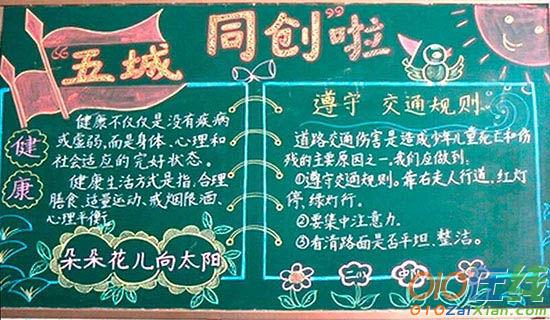 “五城同创”啦
健康
健康不仅仅是没有疾病
或虚弱,而是身体、心理和
社会适应的完好状态。
健康生活方式是指,合理
膳食、适量运动、戒烟限酒、
心理平衡。
朵朵花儿向太阳
遵守 交通规则。
道路交通伤害是造成少年儿童死亡和伤
残的主要原因之一。我们应做到:
①遵守交通规则。靠右走人行道,红灯
停,绿灯行。
②要集中注意力。
③看清路面是否平坦、整洁。
二(1) 中队
010在线
010zaixian.com